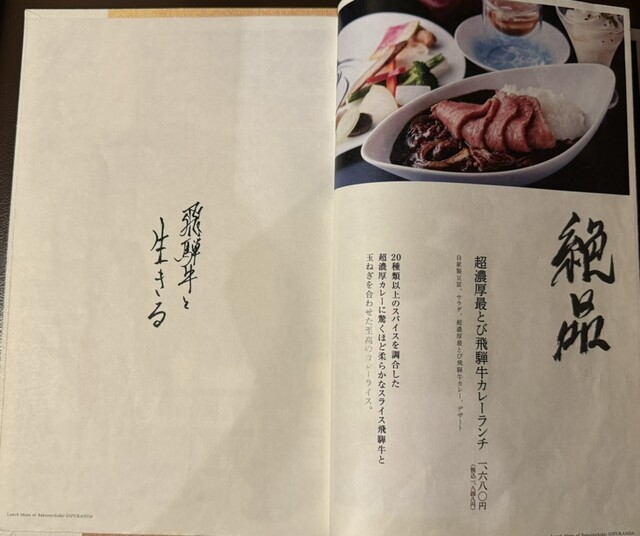 飛騨牛と
生きる
絶品
超濃厚最とび飛騨牛カレーランチ 一、六八〇円
（税込一、八四八円）
自家製豆富、サラダ、超濃厚最とび飛騨牛カレー、デザート
20種類以上のスパイスを調合した
超濃厚カレーに驚くほど柔らかなスライス飛騨牛と
玉ねぎを合わせた至高のカレーライス。
Lunch Menu of
Lunch Menu of